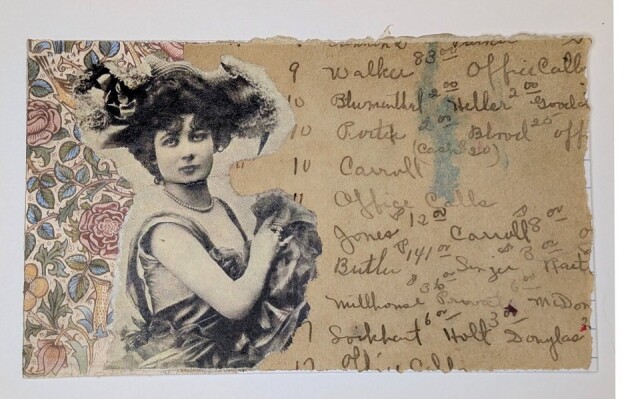 9 Walker 83 00 Office Call
10 Blumenthal 2 00 Heller 2 00
10 Porter 2 00 Blood 20 off
(Cash $20)
10 Carroll
11 Office Calls
Jones $12 00 Carroll $8 00
Butler $141 00 Singer $3 00
Millhouse Private McDon
7 Lockhart 6 00 Holt 3 00 Douglas
12 Office Calls